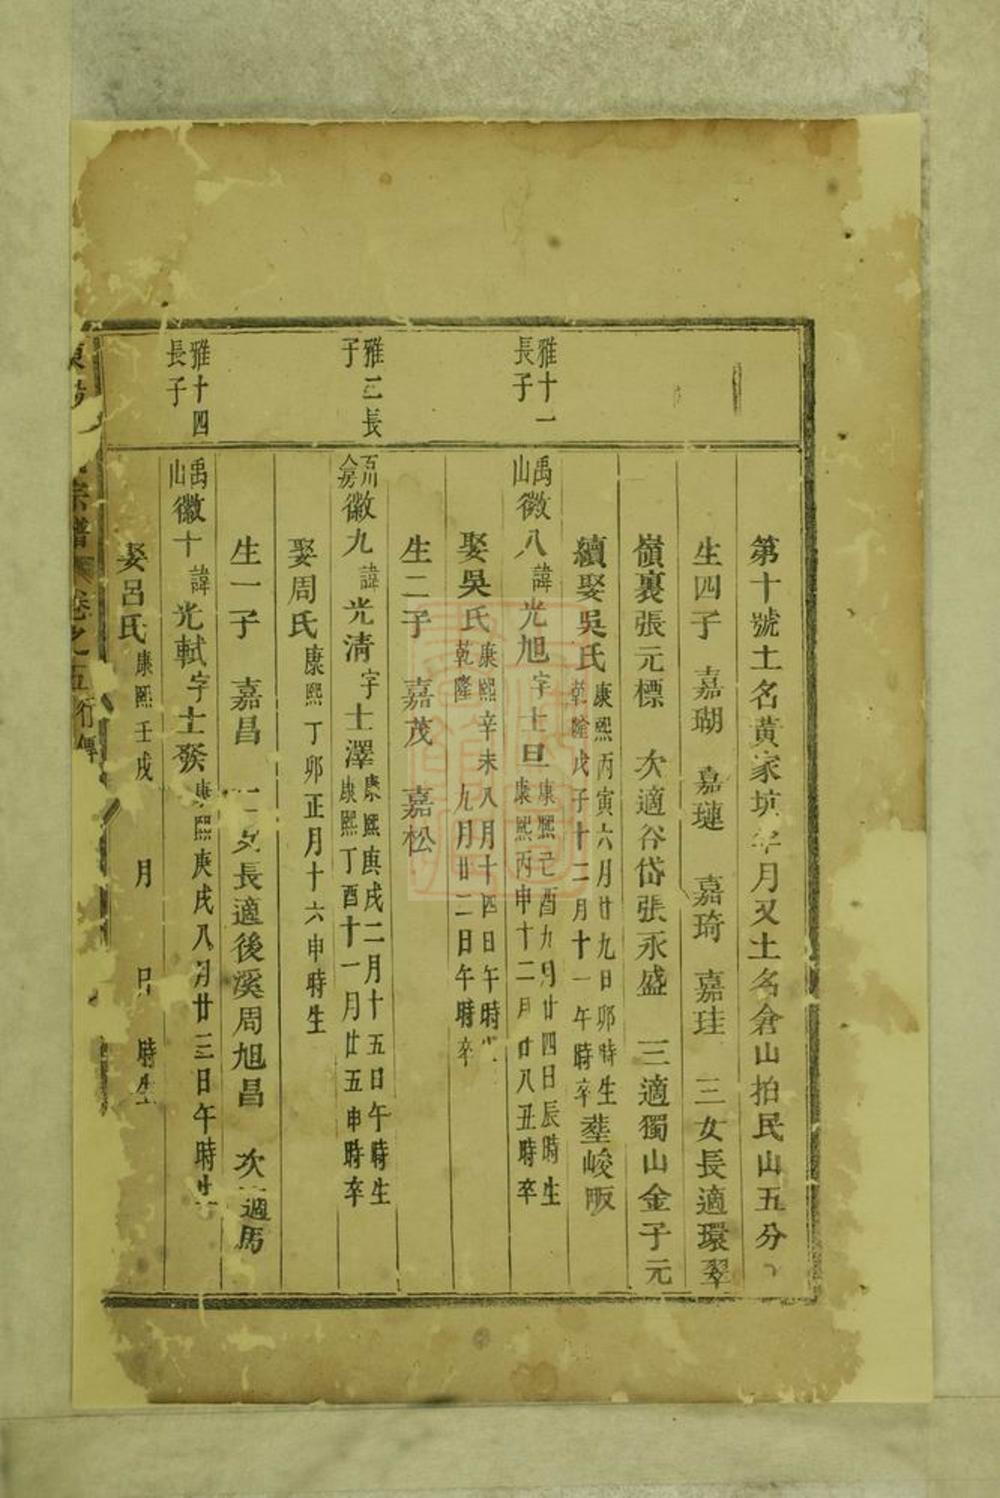 第十號土名黃家坑 月又土名倉山拍民山五分
生四子 嘉瑚 嘉璉 嘉琦 嘉珪 三女長適環翠
嶺裏張元標 次適谷岱張永盛 三適獨山金子元
續娶吳氏 康熙丙寅六月廿九日卯時生 乾隆戊子十二月十一午時卒 塟峻阪
雅十一長子
禹山 徽八 諱光旭 字士旦 康熙己酉九月廿四日辰時生 康熙丙申十二月廿八丑時卒
娶吳氏 康熙辛未八月十四日午時 乾隆 九月廿二日午時卒
生二子 嘉茂 嘉松
雅三長子
徽九 諱光清 字士澤 康熙庚戌二月十五日午時生 康熙丁酉十一月廿五申時卒
娶周氏 康熙丁卯正月十六申時生
生一子 嘉昌 二女長適後溪周旭昌 次適馬
雅十四長子
禹山 徽十 諱光軾 字士發 康熙庚戌八月廿三日午時生
娶呂氏 康熙壬戌 月 日 時生
宗譜 卷之五 行傳